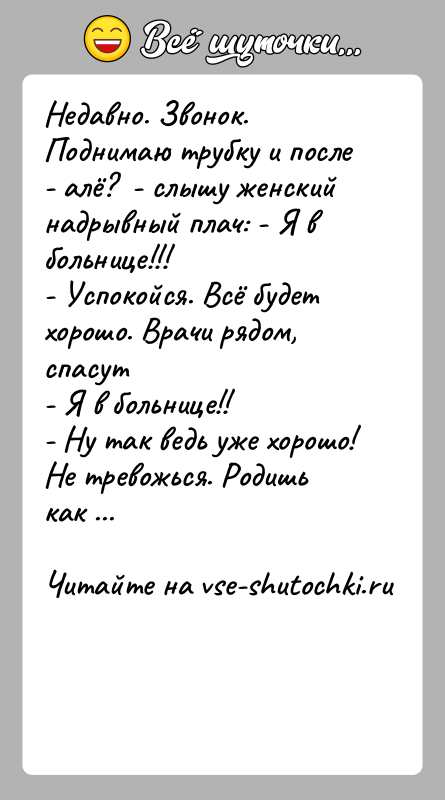 Всё шуточки...
Недавно. Звонок.
Поднимаю трубку и после
- алё?  - слышу женский
надрывный плач: - Я в
больнице!!!
- Успокойся. Всё будет
хорошо. Врачи рядом,
спасут
- Я в больнице!!
- Ну так ведь уже хорошо!
Не тревожься. Родишь
как ...
Читайте на vse-shutochki.ru